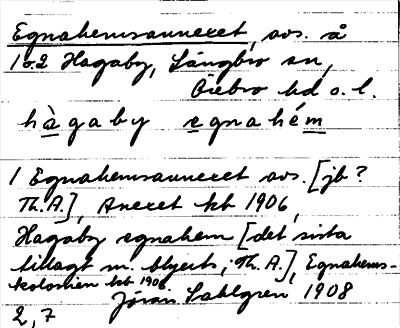 Egnahemsannexet, avs. å
1 o. 2 Hagaby, Längbro sn,
Örebro hd o. l.
hàgaby egnahém
1 Egnahemsannexet avs. [jb?
Th.A.], Anexet kb 1906,
Hagaby egnahem [det sista
tillagt m. blyerts, Th.A.], Egnahems-
kolonien kb 1906
Jöran Sahlgren 1908
2,7